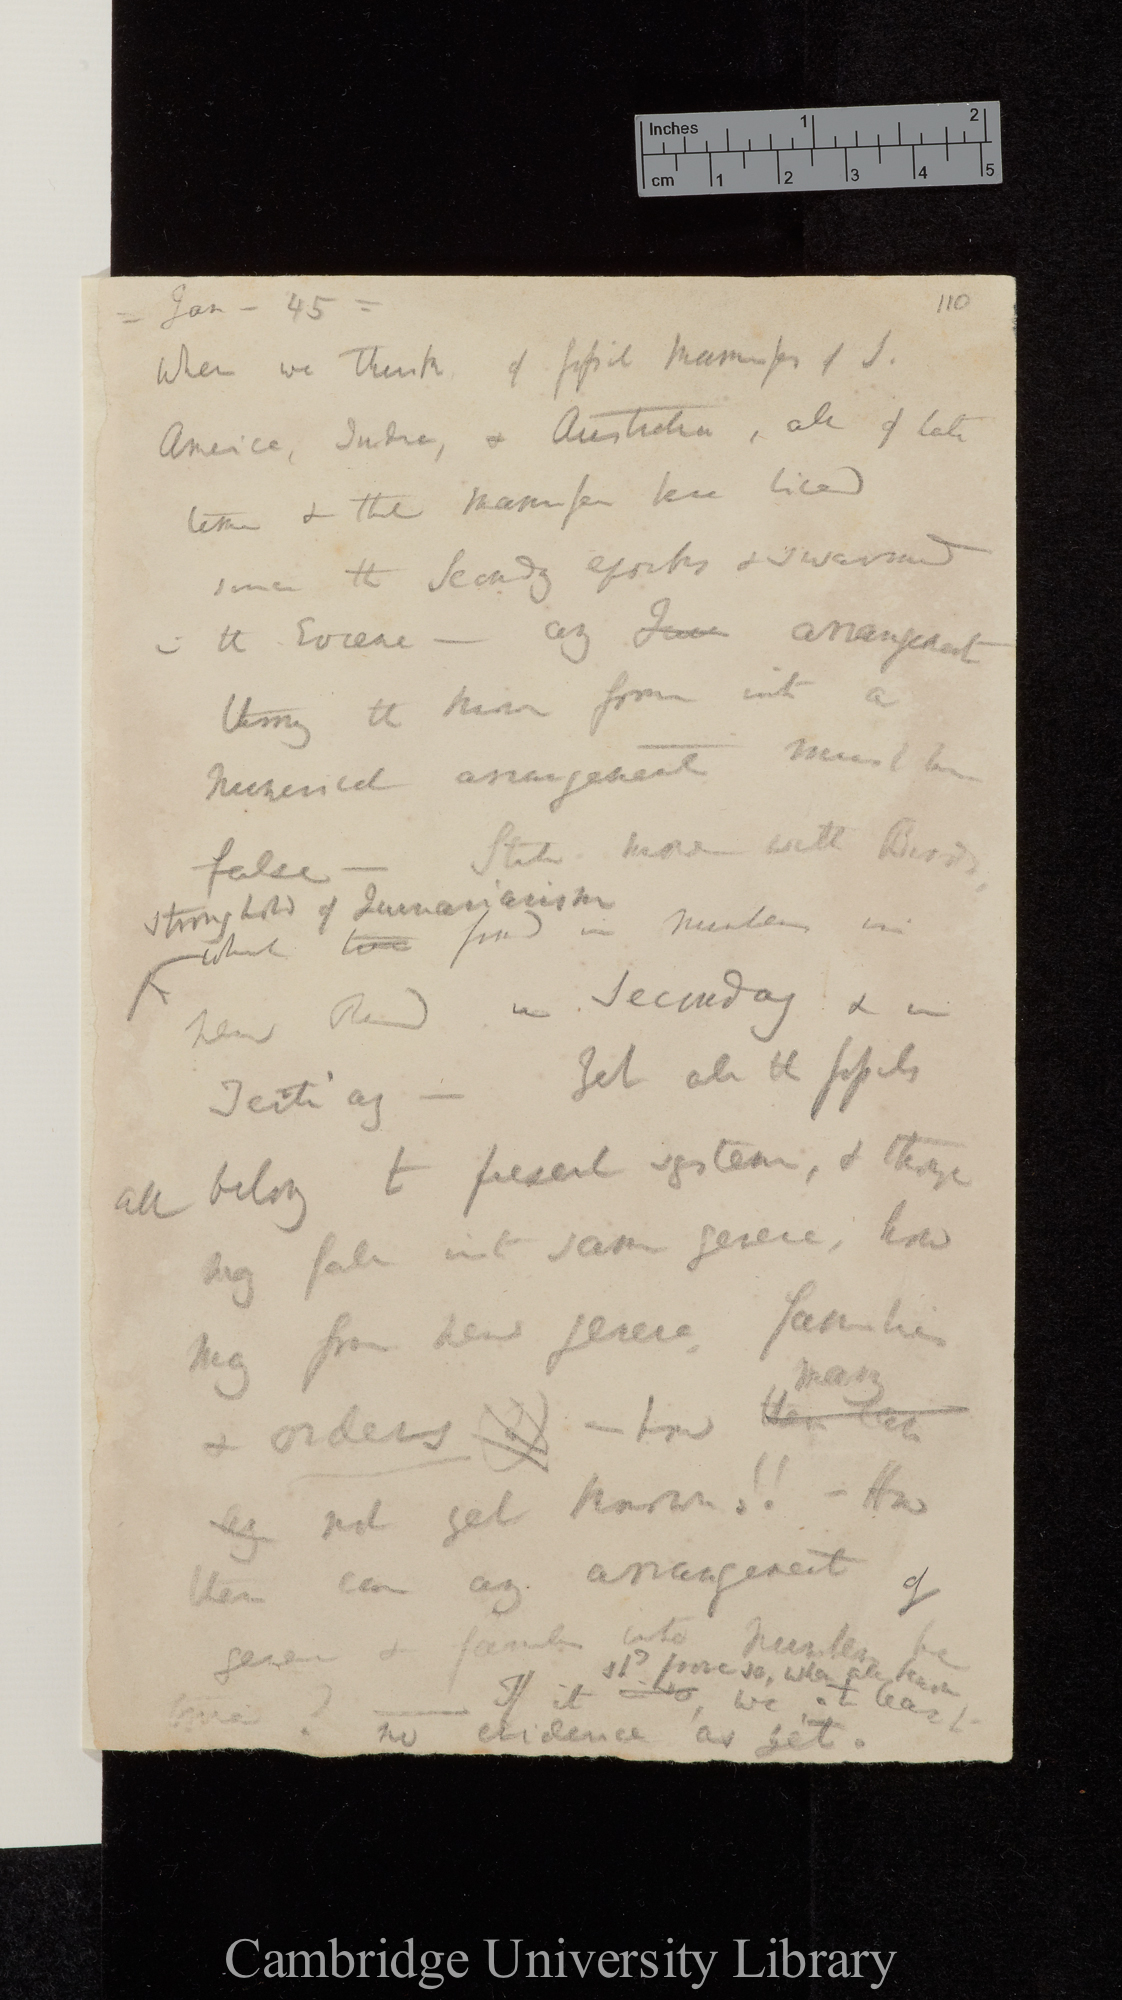 Inches 1 2
cm 1 2 3 4 5
= Jan - 45 = 110
When we think of fossil Mammifers of S.
America, India, & Australia, all of late
& that Mammifer have lived
since the Secondy epochs & swarmed
in the Eocene — any arrangement
the known forms into a
numerical arrangement must be
false — Still more with Birds,
strong hold of Quinarianism
which found in numbers in
New Red in Secondary & in
Tertiary — Yet all the fossils
all belong to present system, & though
many fall into same genera, how
many form new genera, families
many
& orders — how
not yet known!! — How
then can any arrangement of
genera & families into numbers be
shd prove so, when all known
? If it is so, we, at least
no evidence as yet.
Cambridge University Library